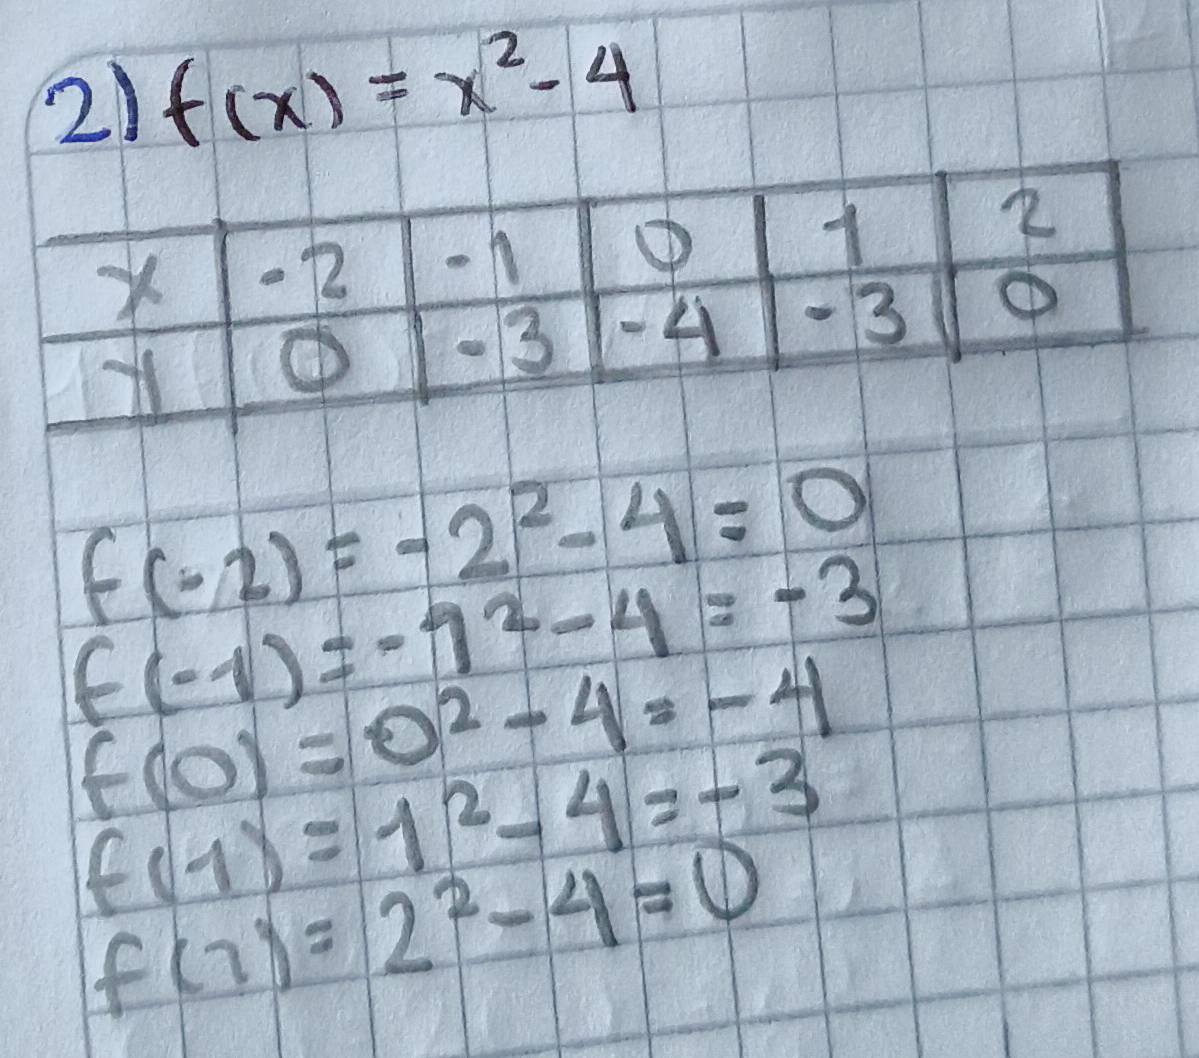 2) f(x) = x² - 4
x -2 -1 0 1 2
y 0 -3 -4 -3 0
f(-2) = -2² - 4 = 0
f(-1) = -1² - 4 = -3
f(0) = 0² - 4 = -4
f(1) = 1² - 4 = -3
f(2) = 2² - 4 = 0